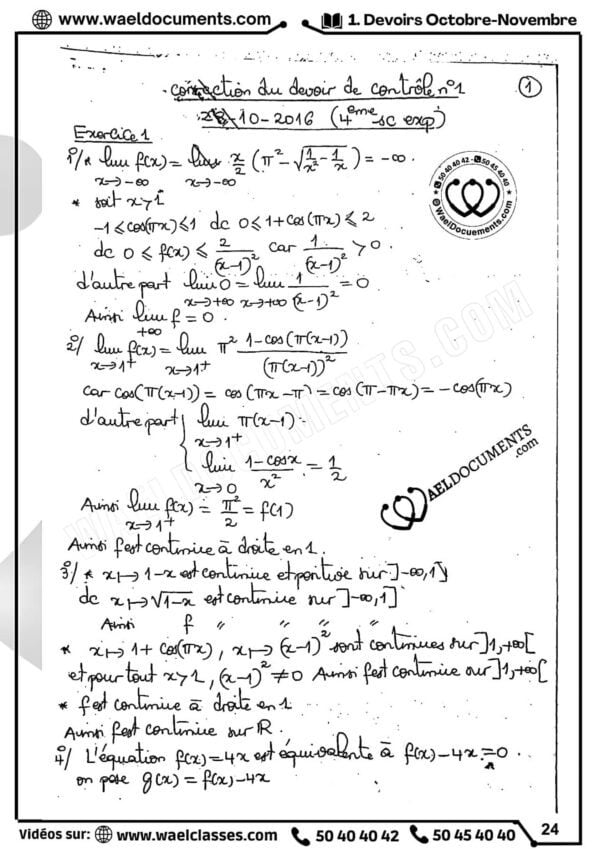 www.waeldocuments.com
1. Devoirs Octobre-Novembre
Correction du devoir de contrôle n°1
1
-10-2016 (4ème sc exp)
Exercice 1
1°/ * lim f(x) = lim x/2 (π² - √(1/x² - 1/x)) = -∞.
x→-∞ x→-∞
* soit x>1
-1 ≤ cos(πx) ≤ 1 dc 0 ≤ 1+cos(πx) ≤ 2
dc 0 ≤ f(x) ≤ 2/(x-1)² car 1/(x-1)² > 0.
d'autre part lim 0 = lim 1/(x-1)² = 0
x→+∞ x→+∞
Ainsi lim f = 0.
+∞
2°/ lim f(x) = lim π² (1-cos(π(x-1)))/(π(x-1))²
x→1⁺ x→1⁺
car cos(π(x-1)) = cos(πx-π) = cos(π-πx) = -cos(πx)
d'autre part { lim π(x-1)
x→1⁺
lim (1-cosx)/x² = 1/2
x→0
Ainsi lim f(x) = π²/2 = f(1)
x→1⁺
Ainsi f est continue à droite en 1.
3°/ * x↦1-x est continue et positive sur ]-∞,1]
dc x↦√(1-x) est continue sur ]-∞,1]
Ainsi f " " " "
* x↦1+cos(πx), x↦(x-1)² sont continues sur ]1,+∞[
et pour tout x>1, (x-1)² ≠ 0 Ainsi f est continue sur ]1,+∞[
* f est continue à droite en 1
Ainsi f est continue sur ℝ.
4°/ L'équation f(x)=4x est équivalente à f(x)-4x=0.
on pose g(x) = f(x)-4x
50 40 40 42 - 50 45 40 40
WaelDocuements.com
WAELDOCUMENTS.COM
WAELDOCUMENTS
.com
Vidéos sur: www.waelclasses.com 50 40 40 42 50 45 40 40
24